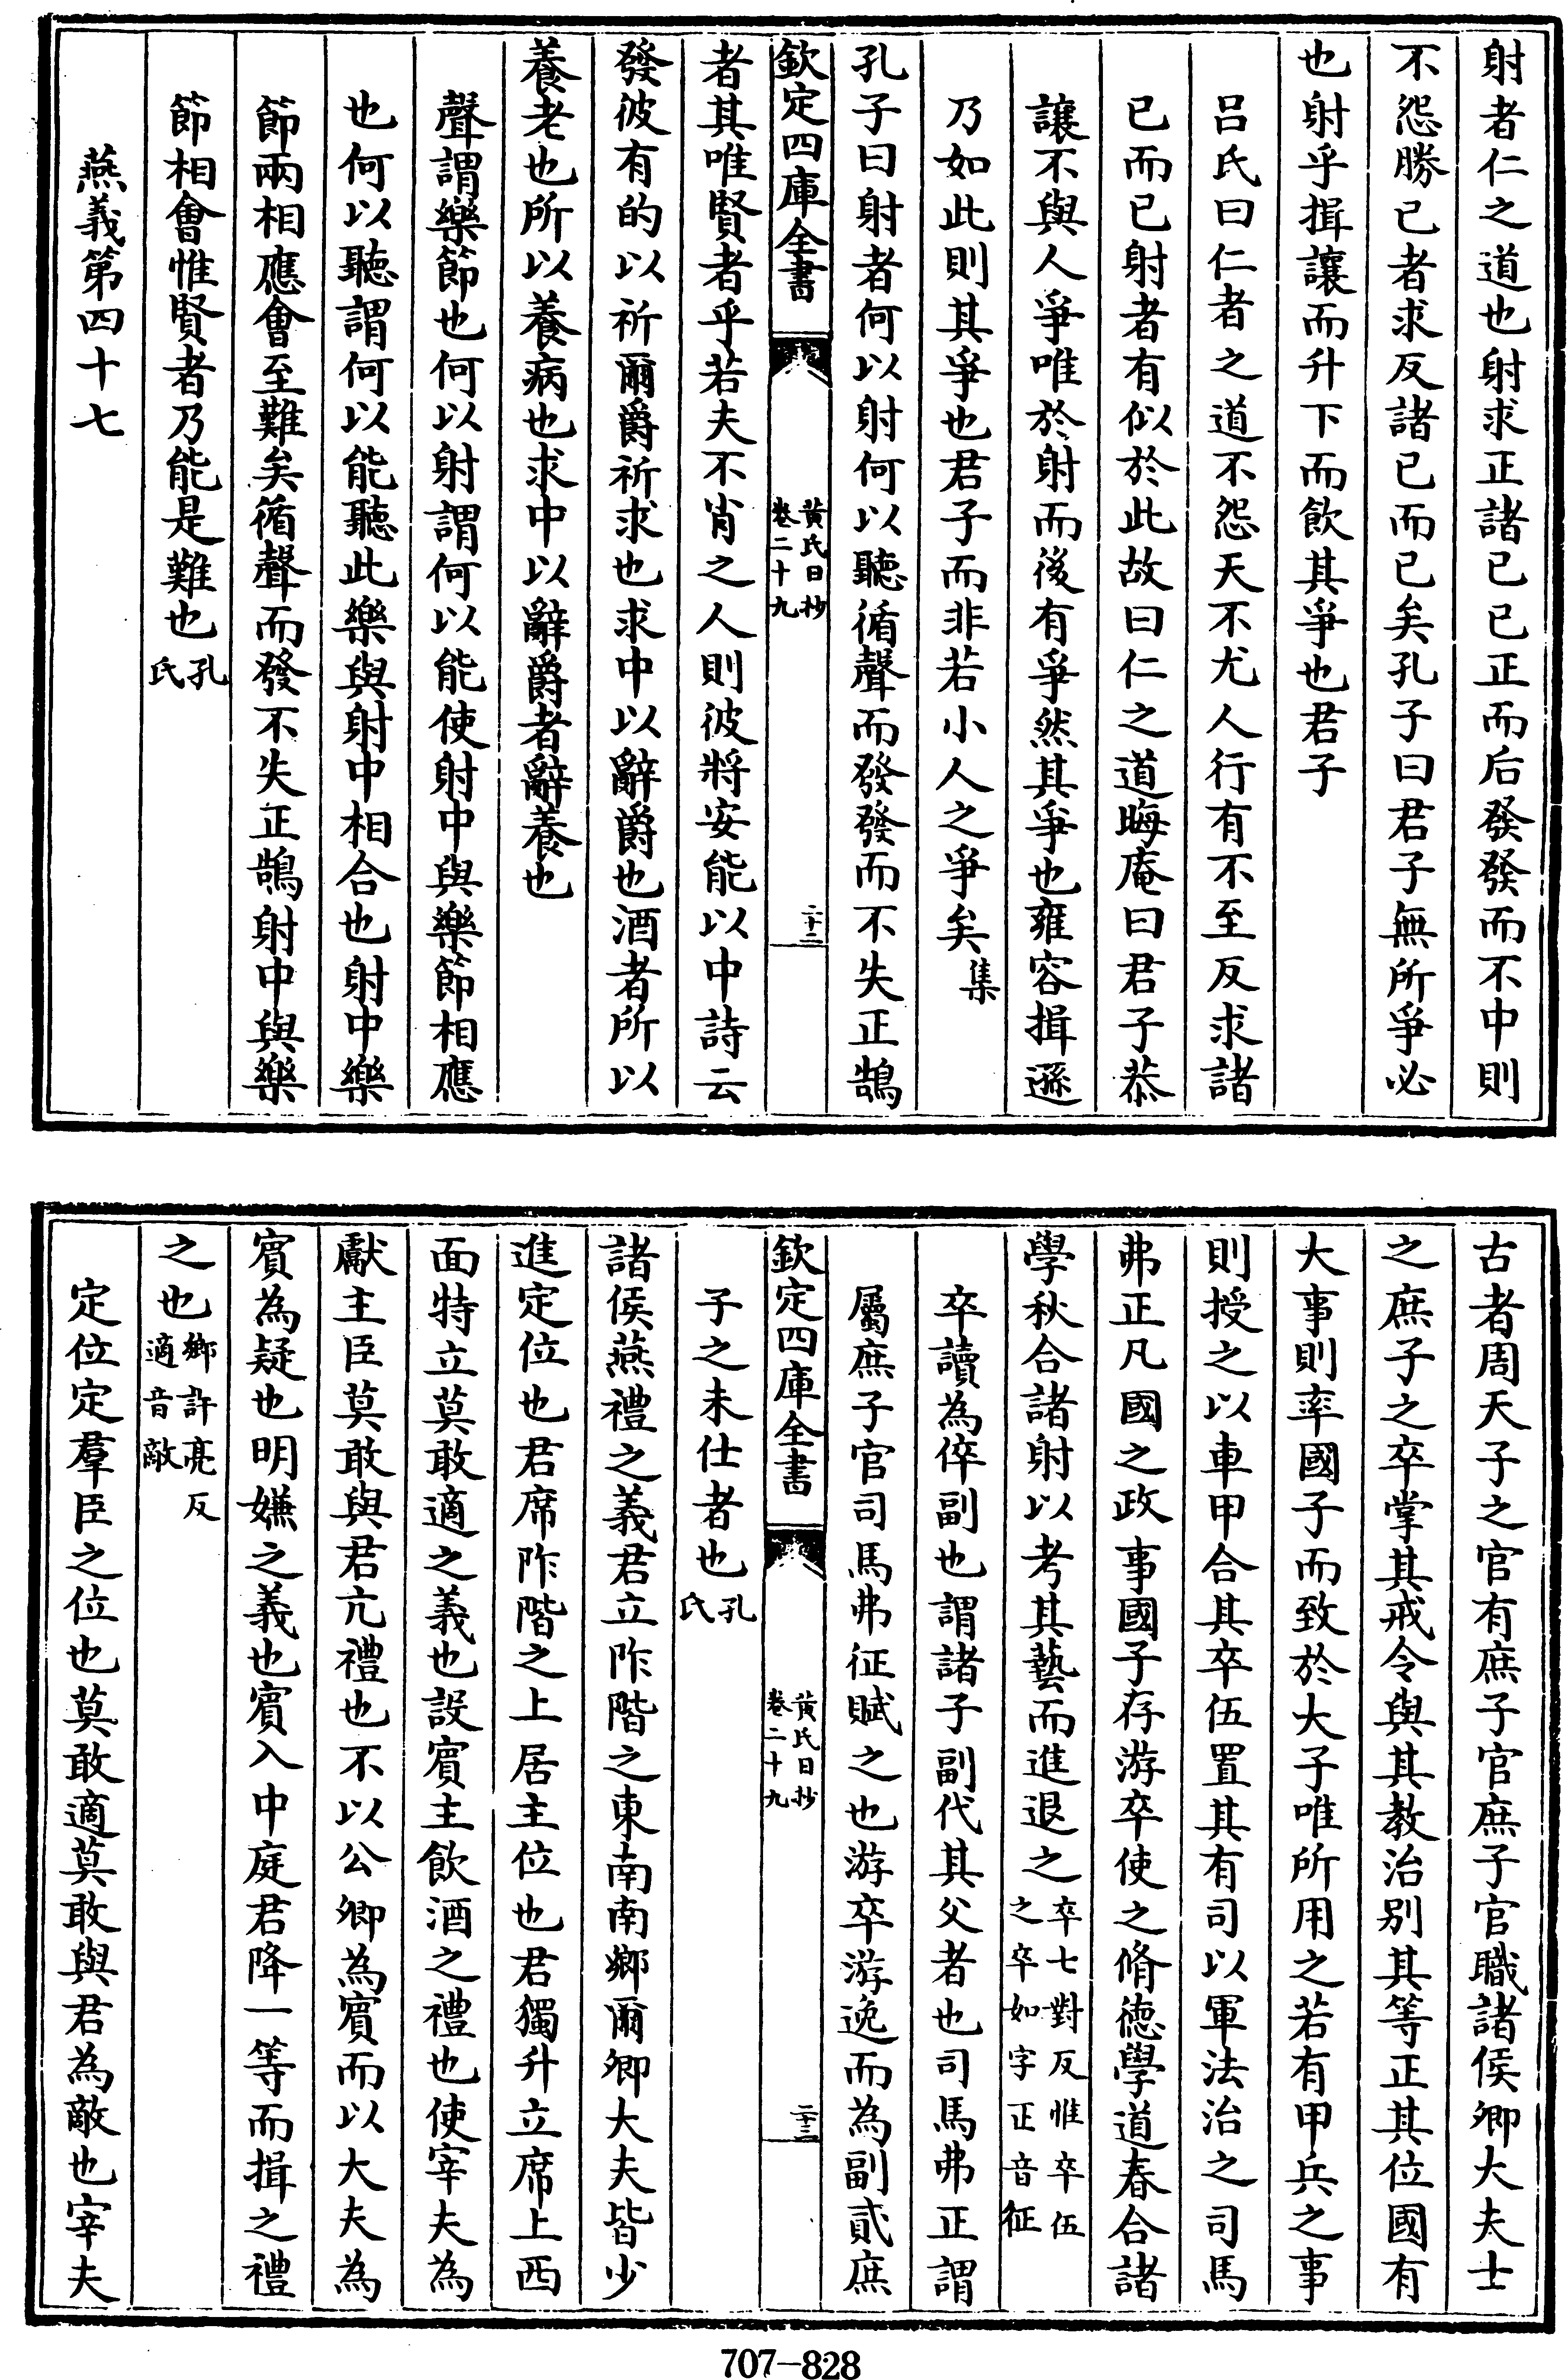 射者仁之道也射求正諸已已正而后發發而不中則
不怨勝已者求反諸已而已矣孔子曰君子無所爭必
也射乎揖讓而升下而飲其爭也君子
吕氏曰仁者之道不怨天不尤人行有不至反求諸
已而已射者有似於此故曰仁之道晦庵曰君子恭
讓不與人爭唯於射而後有爭然其爭也雍容揖遜
乃如此則其爭也君子而非若小人之爭矣集
孔子曰射者何以射何以聽循聲而發發而不失正鵠
欽定四庫全書
黄氏日抄
卷二十九
二十二
者其唯賢者乎若夫不肖之人則彼將安能以中詩云
發彼有的以祈爾爵祈求也求中以辭爵也酒者所以
養老也所以養病也求中以辭爵者辭養也
聲謂樂節也何以射謂何以能使射中與樂節相應
也何以聽謂何以能聽此樂與射中相合也射中樂
節兩相應會至難矣循聲而發不失正鵠射中與樂
節相會惟賢者乃能是難也孔氏
燕義第四十七
古者周天子之官有庶子官庶子官職諸侯卿大夫士
之庶子之卒掌其戒令與其教治别其等正其位國有
大事則率國子而致於大子唯所用之若有甲兵之事
則授之以車甲合其卒伍置其有司以軍法治之司馬
弗正凡國之政事國子存游卒使之脩德學道春合諸
學秋合諸射以考其藝而進退之卒七對反惟卒伍之卒如字正音征
卒讀為倅副也謂諸子副代其父者也司馬弗正謂
屬庶子官司馬弗征賦之也游卒游逸而為副貳庶
欽定四庫全書
黄氏日抄
卷二十九
二十三
子之未仕者也孔氏
諸侯燕禮之義君立阼階之東南南鄉爾卿大夫皆少
進定位也君席阼階之上居主位也君獨升立席上西
面特立莫敢適之義也設賓主飲酒之禮也使宰夫為
獻主臣莫敢與君亢禮也不以公卿為賓而以大夫為
賓為疑也明嫌之義也賓入中庭君降一等而揖之禮
之也鄉許亮反適音敵
定位定羣臣之位也莫敢適莫敢與君為敵也宰夫
707-828